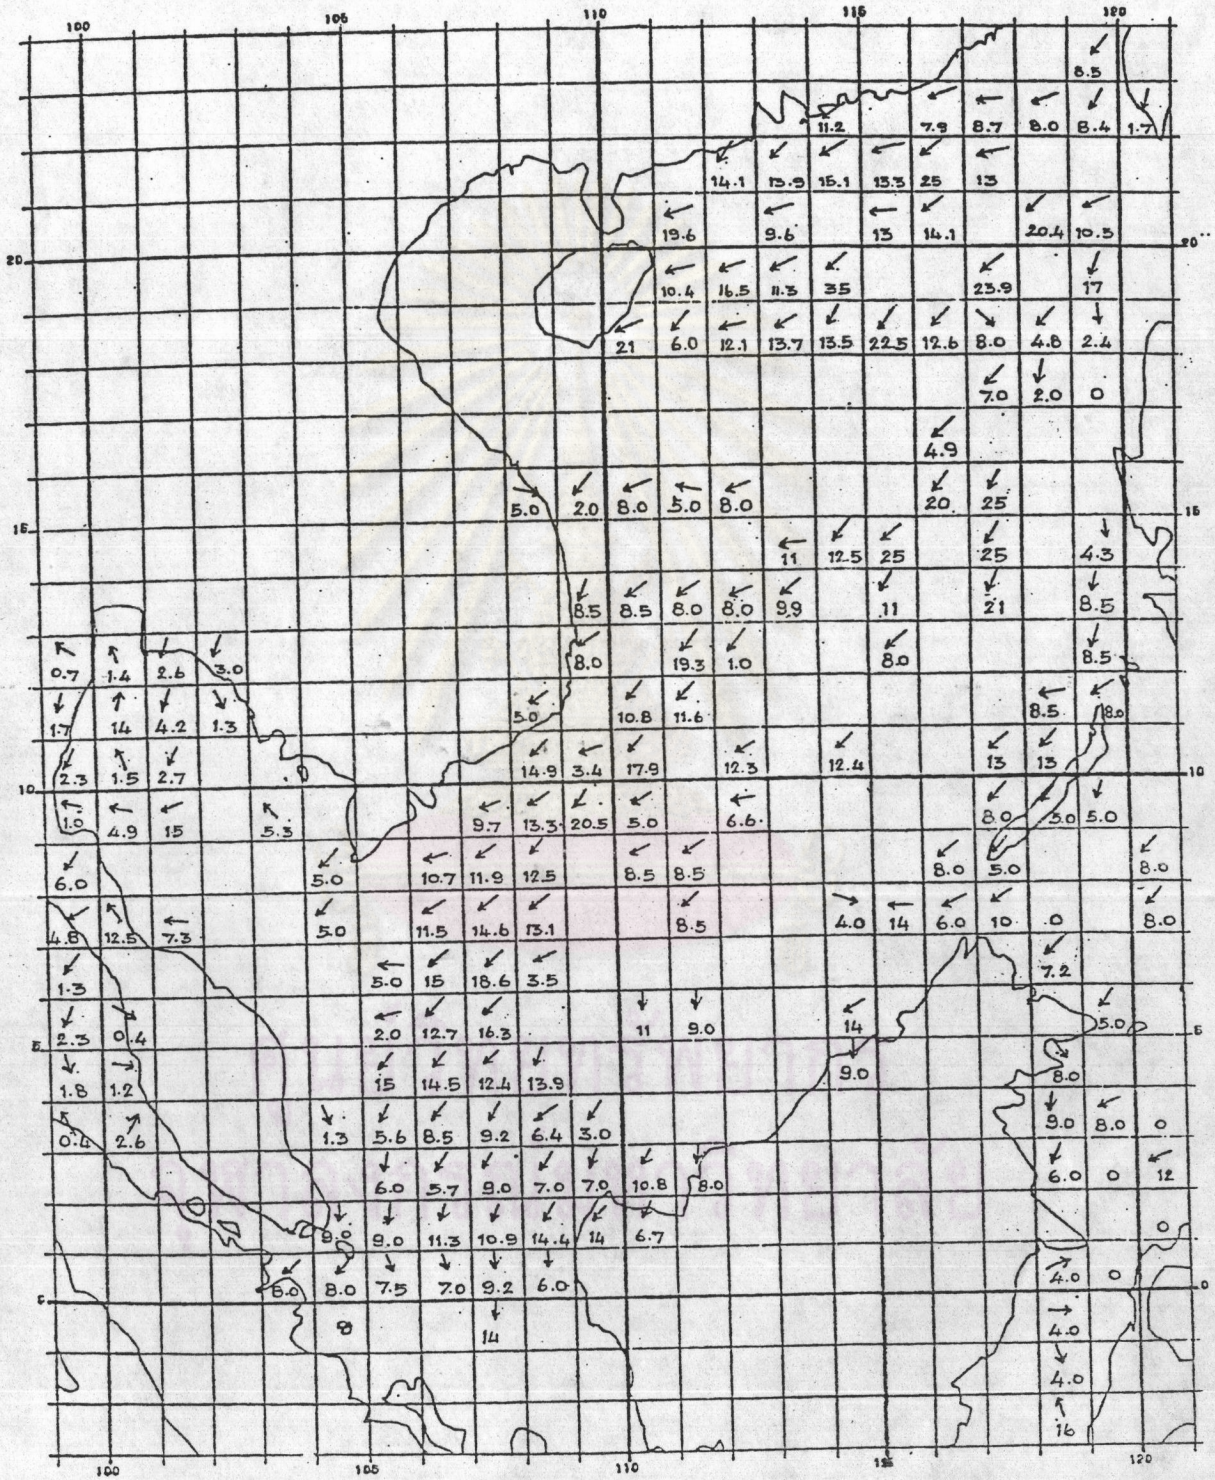 100 105 110 115 120
8.5
11.2 7.9 8.7 8.0 8.4 1.7
14.1 13.9 15.1 13.3 25 13
19.6 9.6 13 14.1 20.4 10.3
20 20
10.4 16.5 11.3 35 23.9 17
21 6.0 12.1 13.7 13.5 22.5 12.6 8.0 4.8 2.4
7.0 2.0 0
4.9
5.0 2.0 8.0 5.0 8.0 20 25
15 15
11 12.5 25 25 4.3
8.5 8.5 8.0 8.0 9.9 11 21 8.5
8.0 19.3 1.0 8.0 8.5
0.7 1.4 2.6 3.0
5.0 10.8 11.6 8.5 8.0
1.7 14 4.2 1.3
14.9 3.4 17.9 12.3 12.4 13 13
2.3 1.5 2.7
10 10
1.0 4.9 15 5.3 9.7 13.3 20.5 5.0 6.6 8.0 3.0 5.0
6.0 5.0 10.7 11.9 12.5 8.5 8.5 8.0 5.0 8.0
4.8 12.5 7.3 5.0 11.5 14.6 13.1 8.5 4.0 14 6.0 10 0 8.0
1.3 5.0 15 18.6 3.5 7.2
2.3 0.4 2.0 12.7 16.3 11 9.0 14 5.0
5 5
1.8 1.2 15 14.5 12.4 13.9 9.0 8.0
0.4 2.6 1.3 5.6 8.5 9.2 6.4 3.0 9.0 8.0 0
6.0 5.7 9.0 7.0 7.0 10.8 8.0 6.0 0 12
9.0 9.0 11.3 10.9 14.4 14 6.7 0
8.0 7.5 7.0 9.2 6.0 4.0 0
0
14 4.0
4.0
16
100 105 110 115 120